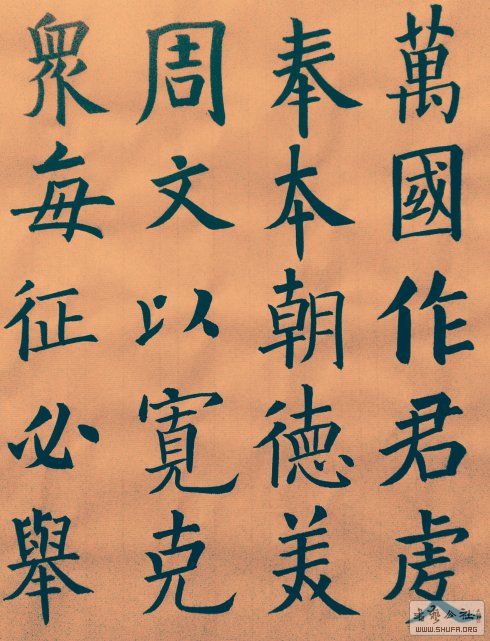 萬國作君虔
奉本朝德美
周文以寛克
衆每征必舉
書法公社
WWW.SHUFA.ORG